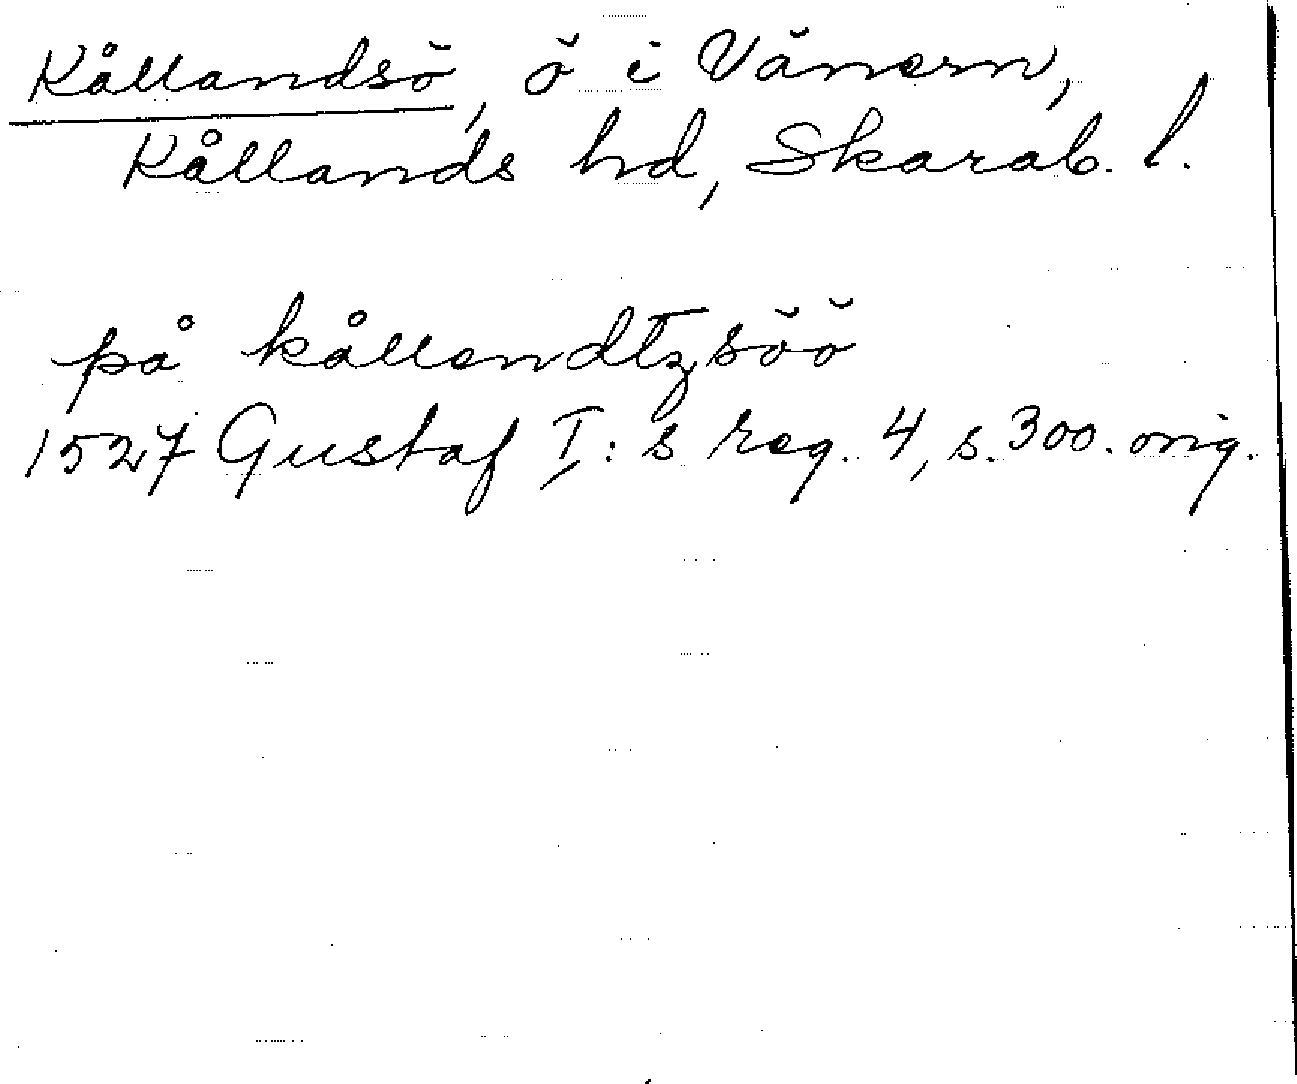 Kållandsö, ö i Vänern,
Kållands hd, Skarab. l.
på kållendtzsöö
1527 Gustaf I:s reg. 4, s. 300. orig.